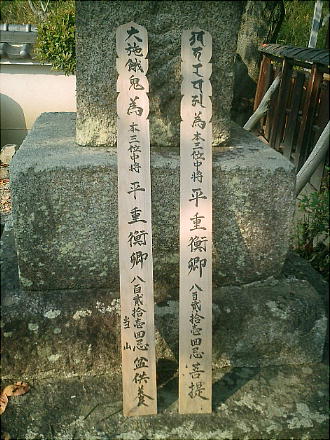 為本三位中将平重衡卿八百貳拾壱回忌菩提
大地餓鬼為本三位中将平重衡卿八百貳拾壱回忌盆供養
当山